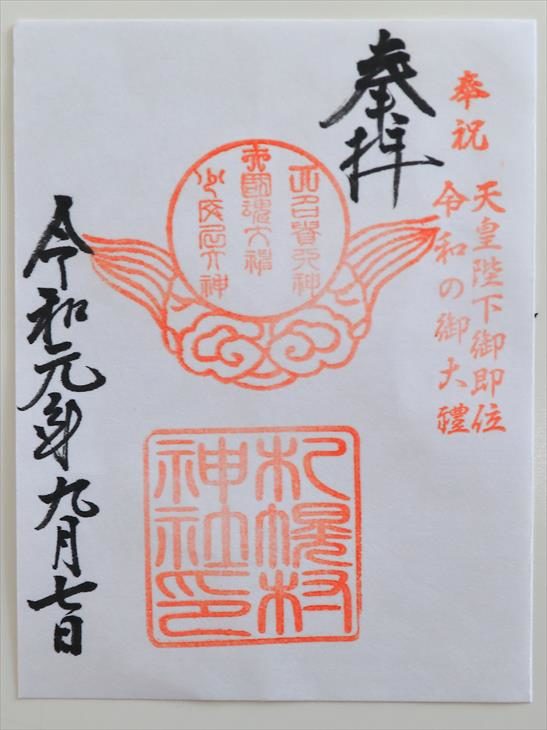 奉祝
天皇陛下御即位
令和の御大禮
奉拝
大己貴大神
大國魂大神
少彦名大神
札幌村
神社印
令和元年九月七日